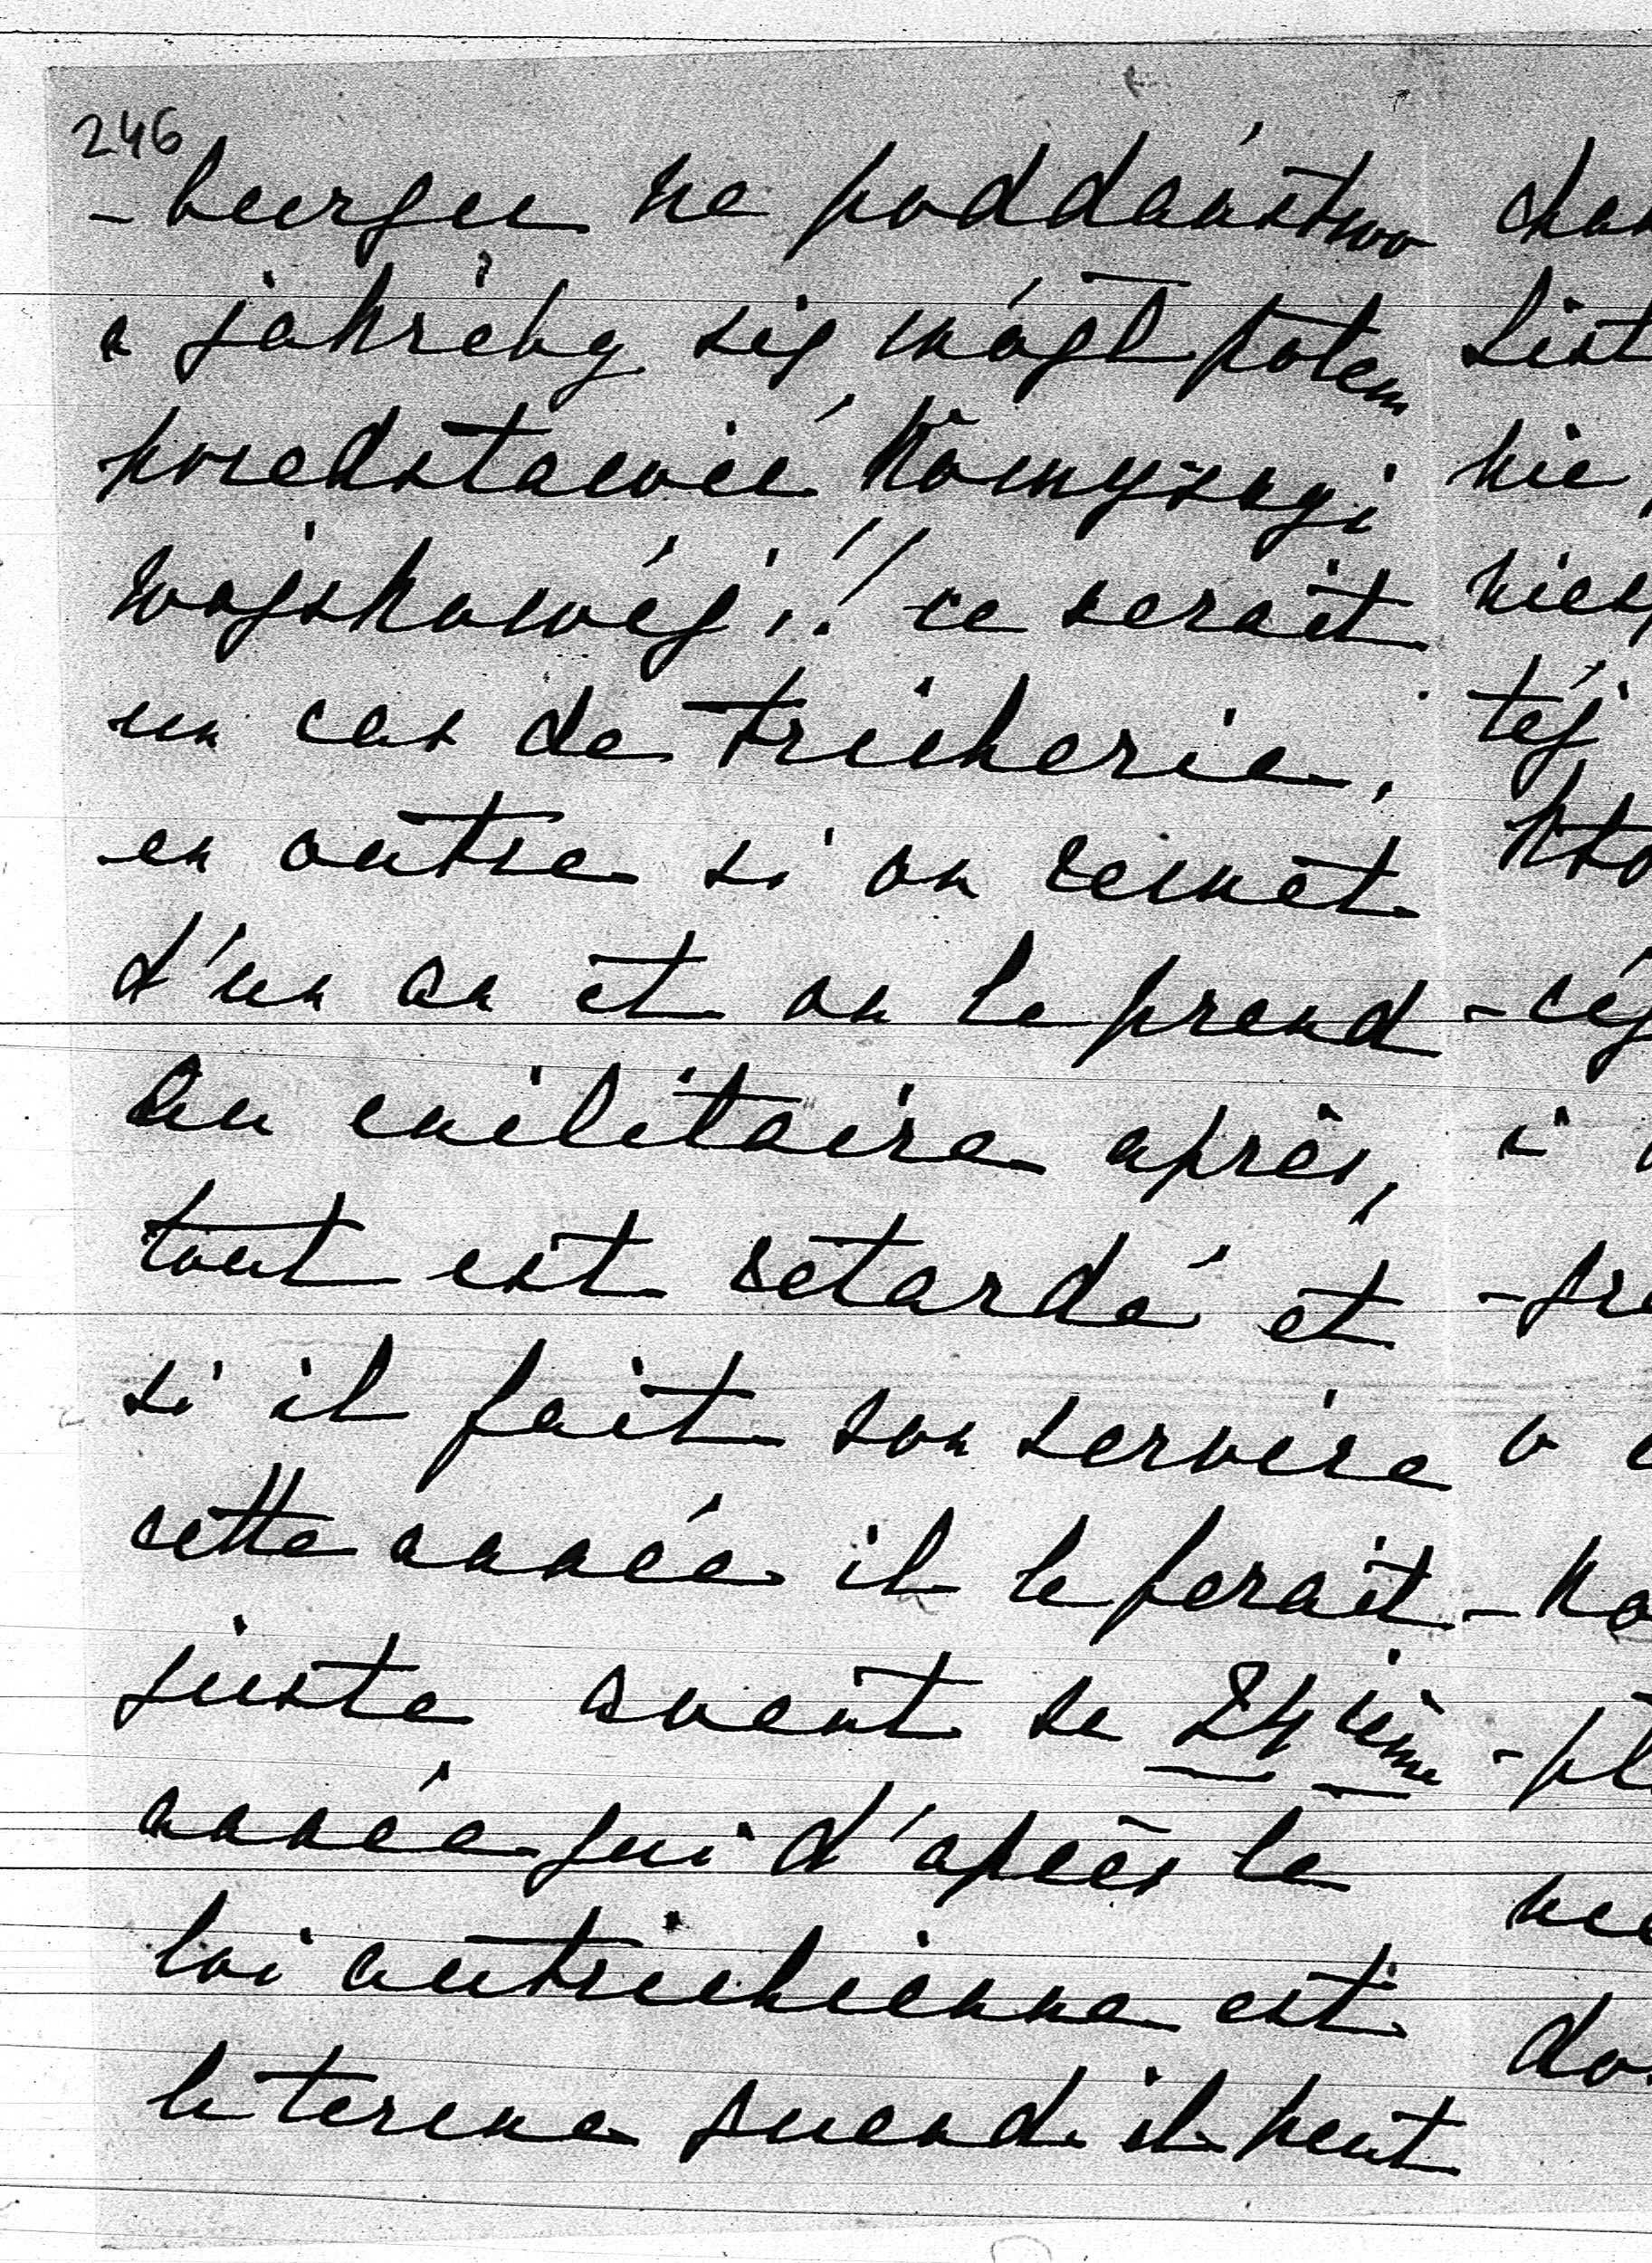 246
-burgu na poddaństwo
a jakżeby się mógł potem
przedstawić Komyssyi
wojskowéj!! ce serait
un cas de tricherie,
en outre si on remet
d'un an et on le prend
au militaire après,
tout est retardé et
si il fait son service
cette année il le ferait
juste avant sa 24ième
année qui d'après la
loi autrichienne est
le terme quand il peut
List
nie
téj